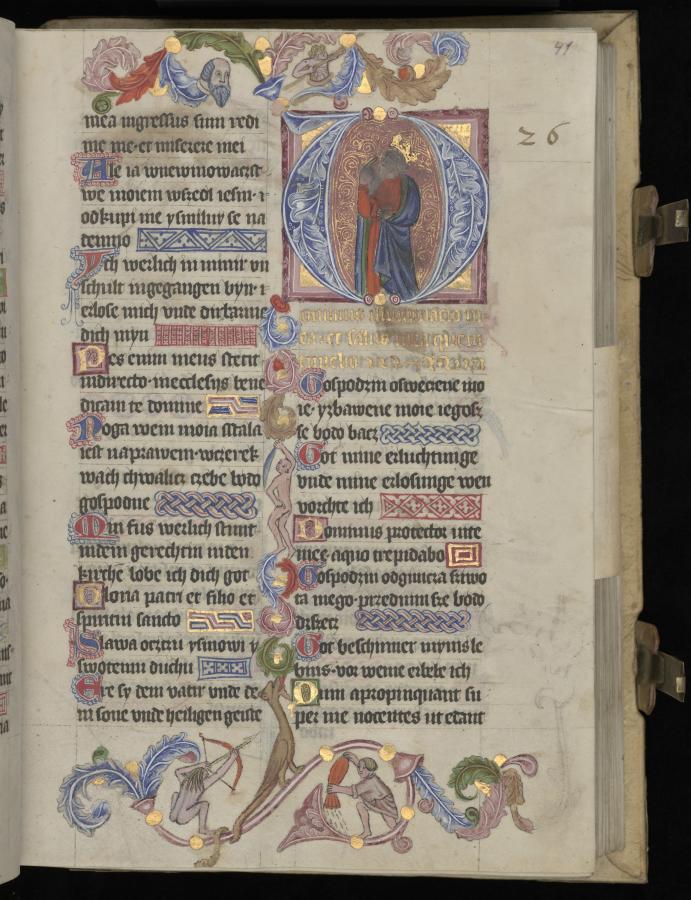 41
26
mea ingressus sum redi
me me et miserere mei
Ale ia wnewinowaczst
we moiem wszedl iesm
odkupi me y smiluy se na
demno
Ich werlich in minir vn
schult ingegangen byn
erlose mich vnde dirbarme
dich myn
Pes enim meus stetit
indirecto in ecclesiis bene
dicam te domine
Noga wem moia stala
iest na prawem w czerek
wach chwalicz czebe bodo
gospodne
Min fus werlich stunt
in dem gerechtin in den
kirche lobe ich dich got
Gloria patri et filio et
spiritui sancto
Slawa oczczu y sinowi y
swotemu duchu
Ere sy dem vatir vnde de
m sone vnde heiligen geiste
Gospodzin oswecene mo
ie y zbawene moie iegosz
se bodo bacz
Got mine erluchtunge
vnde mine erlosunge wen
vorchte ich
Dominus protector uite
mee a quo trepidabo
Gospodzin odgmicza sziwo
ta mego przed nim sze bodo
drszecz
Got beschirmer mynis le
bins vor weme erbebe ich
Dum apropinquant su
per me nocentes ut edant